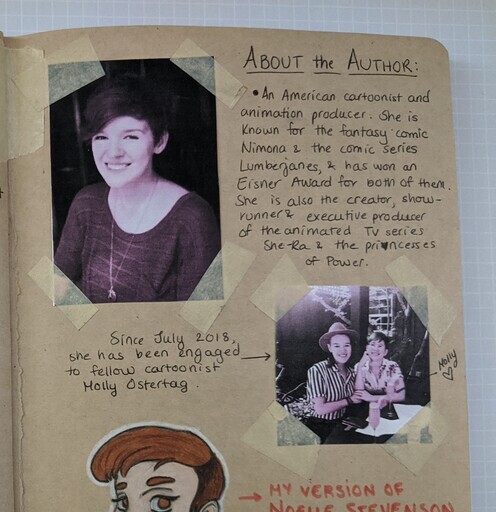 ABOUT the AUTHOR:
• An American cartoonist and
animation producer. She is
known for the fantasy comic
Nimona & the comic series
Lumberjanes, & has won an
Eisner Award for both of them.
She is also the creator, show-
runner & executive producer
of the animated TV series
She-Ra & the princesses
of Power.
Since July 2018,
she has been engaged
to fellow cartoonist
Molly Ostertag.
Molly
MY VERSION OF
NOELLE STEVENSON